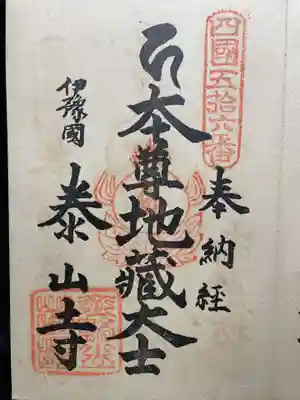 四國五拾六番
奉納経
本尊地藏大士
伊豫國
泰山寺